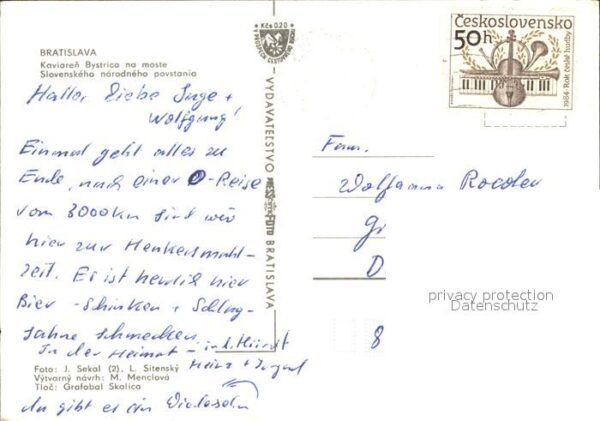 BRATISLAVA
Kaviareň Bystrica na moste
Slovenského národného povstania
Hallo, Liebe Inge +
Wolfgang!
Einmal geht alles zu
Ende, nach einer Reise
von 3000 km sind wir
hier zur Henkersmahl-
zeit. Es ist herrlich hier
Bier - Schinken + Schlag-
sahne schmecken.
In der Heimat -
Heinz +
da gibt es ein Wiedersehn
Foto: J. Sekal (2), L. Sitenský
Výtvarný návrh: M. Menclová
Tlač: Grafobal Skalica
Kčs 0,20
VYDAVATEĽSTVO
FOTO BRATISLAVA
Československo
50h
1984 · Rok české hudby
Fam.
D
8
privacy protection
Datenschutz